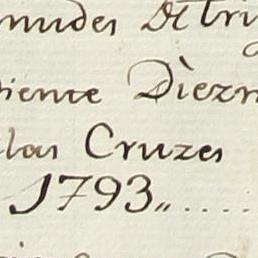 mudes De tri
iente Diezm
las Cruzes
1793,,.....